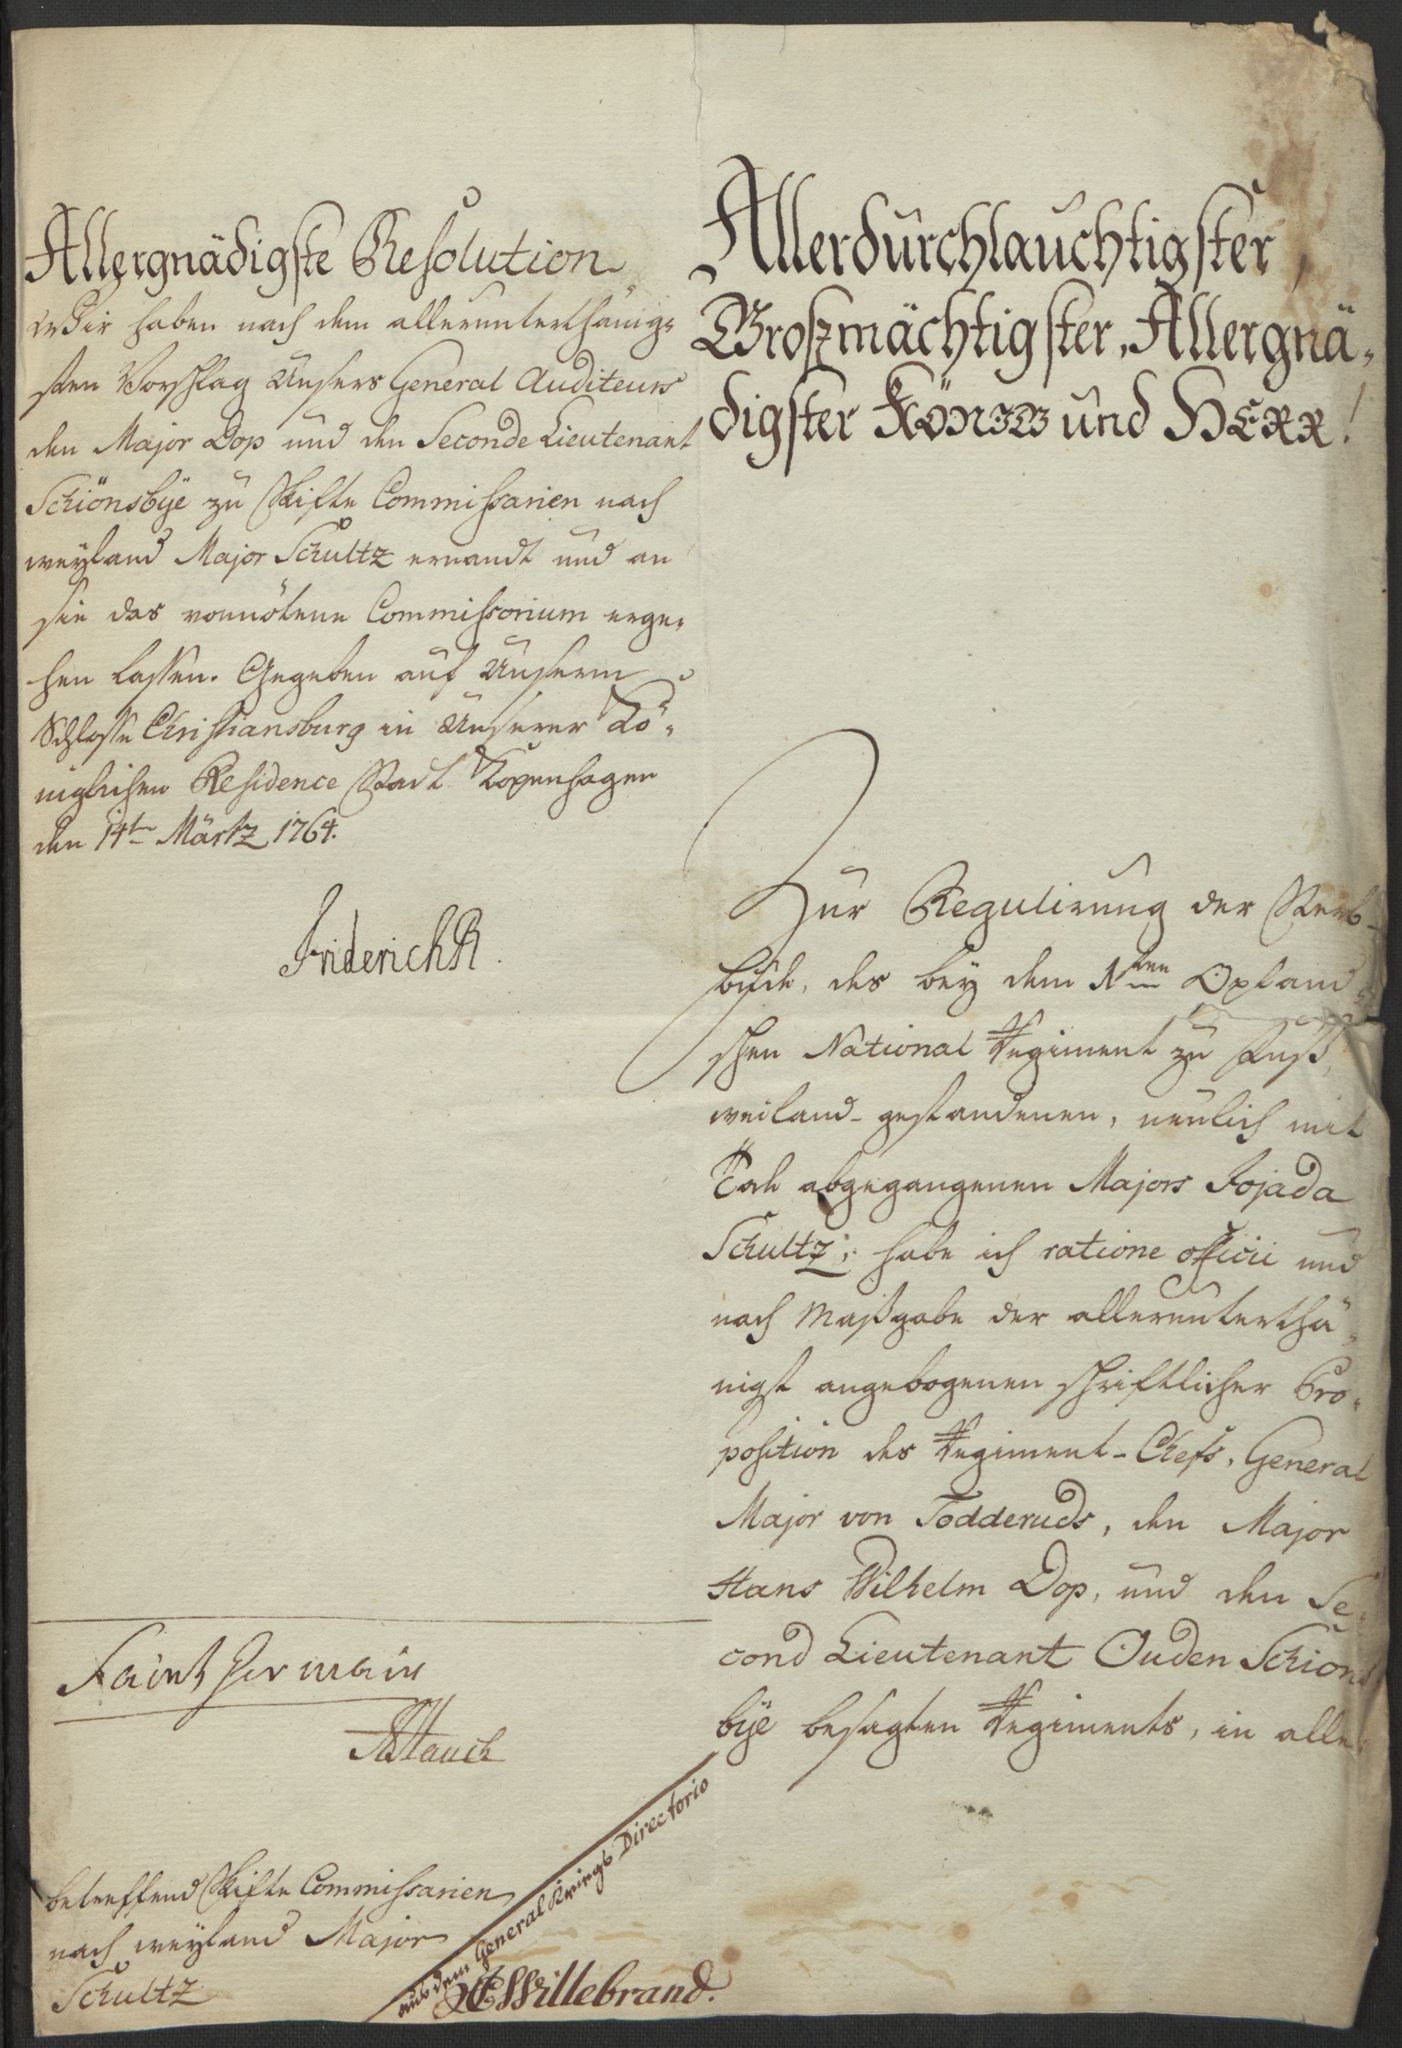 Allergnädigste Resolution
Wir haben nach dem allerunterthänig=
sten Vorschlag Unsers General Auditeurs
den Major Dop und den Seconde Lieutenant
Schiönsbÿe zu Skifte Commissarien nach
weyland Major Schultz ernandt und an
sie das vonnötene Commissorium erge=
hen lassen. Gegeben auf Unserm
Schlosse Christiansburg in Unserer Kö=
niglichen Residence Stadt Kopenhagen
den 14ten Märtz 1764.
Friderich R.
Saint Germain
Hauch
betreffend Skifte Commissarien
nach weyland Major
Schultz
aus dem General Kriegs Directorio
Willebrand.
Allerdurchlauchtigster,
Groszmächtigster, Allergnä=
digster König und Herr!
Zur Regulirung der Sterb=
büde, des bey dem 1ten Opland=
schen National Regiment zu Fuß,
weiland gestandenen, neulich mit
Tode abgegangenen Majors Jojada
Schultz; habe ich ratione officii und
nach Maßgabe der allerunterthä=
nigst angebogenen schriftlicher Pro=
position des Regiment-Chefs, General
Major von Todderuds, den Major
Hans Wilhelm Dop, und den Se=
cond Lieutenant Ouden Schiöns
bÿe besagten Regiments, in aller